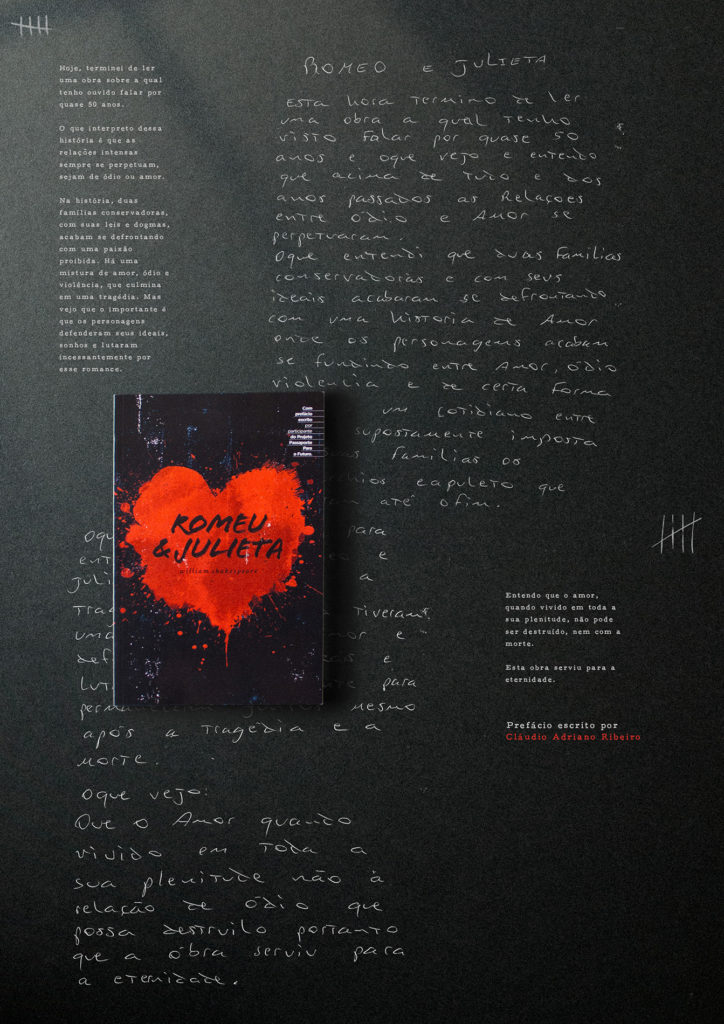 Hoje, terminei de ler
uma obra sobre a qual
tenho ouvido falar por
quase 50 anos.
O que interpreto dessa
história é que as
relações intensas
sempre se perpetuam,
sejam de ódio ou amor.
Na história, duas
famílias conservadoras,
com suas leis e dogmas,
acabam se defrontando
com uma paixão
proibida. Há uma
mistura de amor, ódio e
violência, que culmina
em uma tragédia. Mas
vejo que o importante é
que os personagens
defenderam seus ideais,
sonhos e lutaram
incessantemente por
esse romance.
ROMEO e JULIETA
ESTA hora Termino de ler
uma obra a qual Tenho
visto Falar por quase 50
anos e oque vejo e entendo
que acima de Tudo e dos
anos passados as Relações
entre ódio e Amor se
perpetuaram.
Oque entendi que duas Famílias
conservadoras e com seus
ideais acabaram se defrontando
com uma historia de Amor
onde os personagens acabam
se fundindo entre Amor, ódio
violencia e de certa Forma
um cotidiano entre
supostamente imposta
Familias os
capuleto que
até ofim.
para
e
a
Tiveram
uma e
e
para
mesmo
após a Tragédia e a
morte.
Oque vejo:
Que o Amor quando
vivido em Toda a
sua plenitude não à
relação de ódio que
possa destruilo portanto
que a óbra serviu para
a eternidade.
Com
prefácio
escrito
por
participante
do Projeto
Passaporte
Para
o Futuro.
ROMEU
& JULIETA
william shakespeare
Entendo que o amor,
quando vivido em toda a
sua plenitude, não pode
ser destruído, nem com a
morte.
Esta obra serviu para a
eternidade.
Prefácio escrito por
Cláudio Adriano Ribeiro